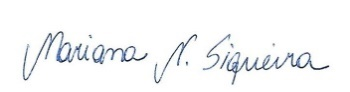 Mariana N. Siqueira